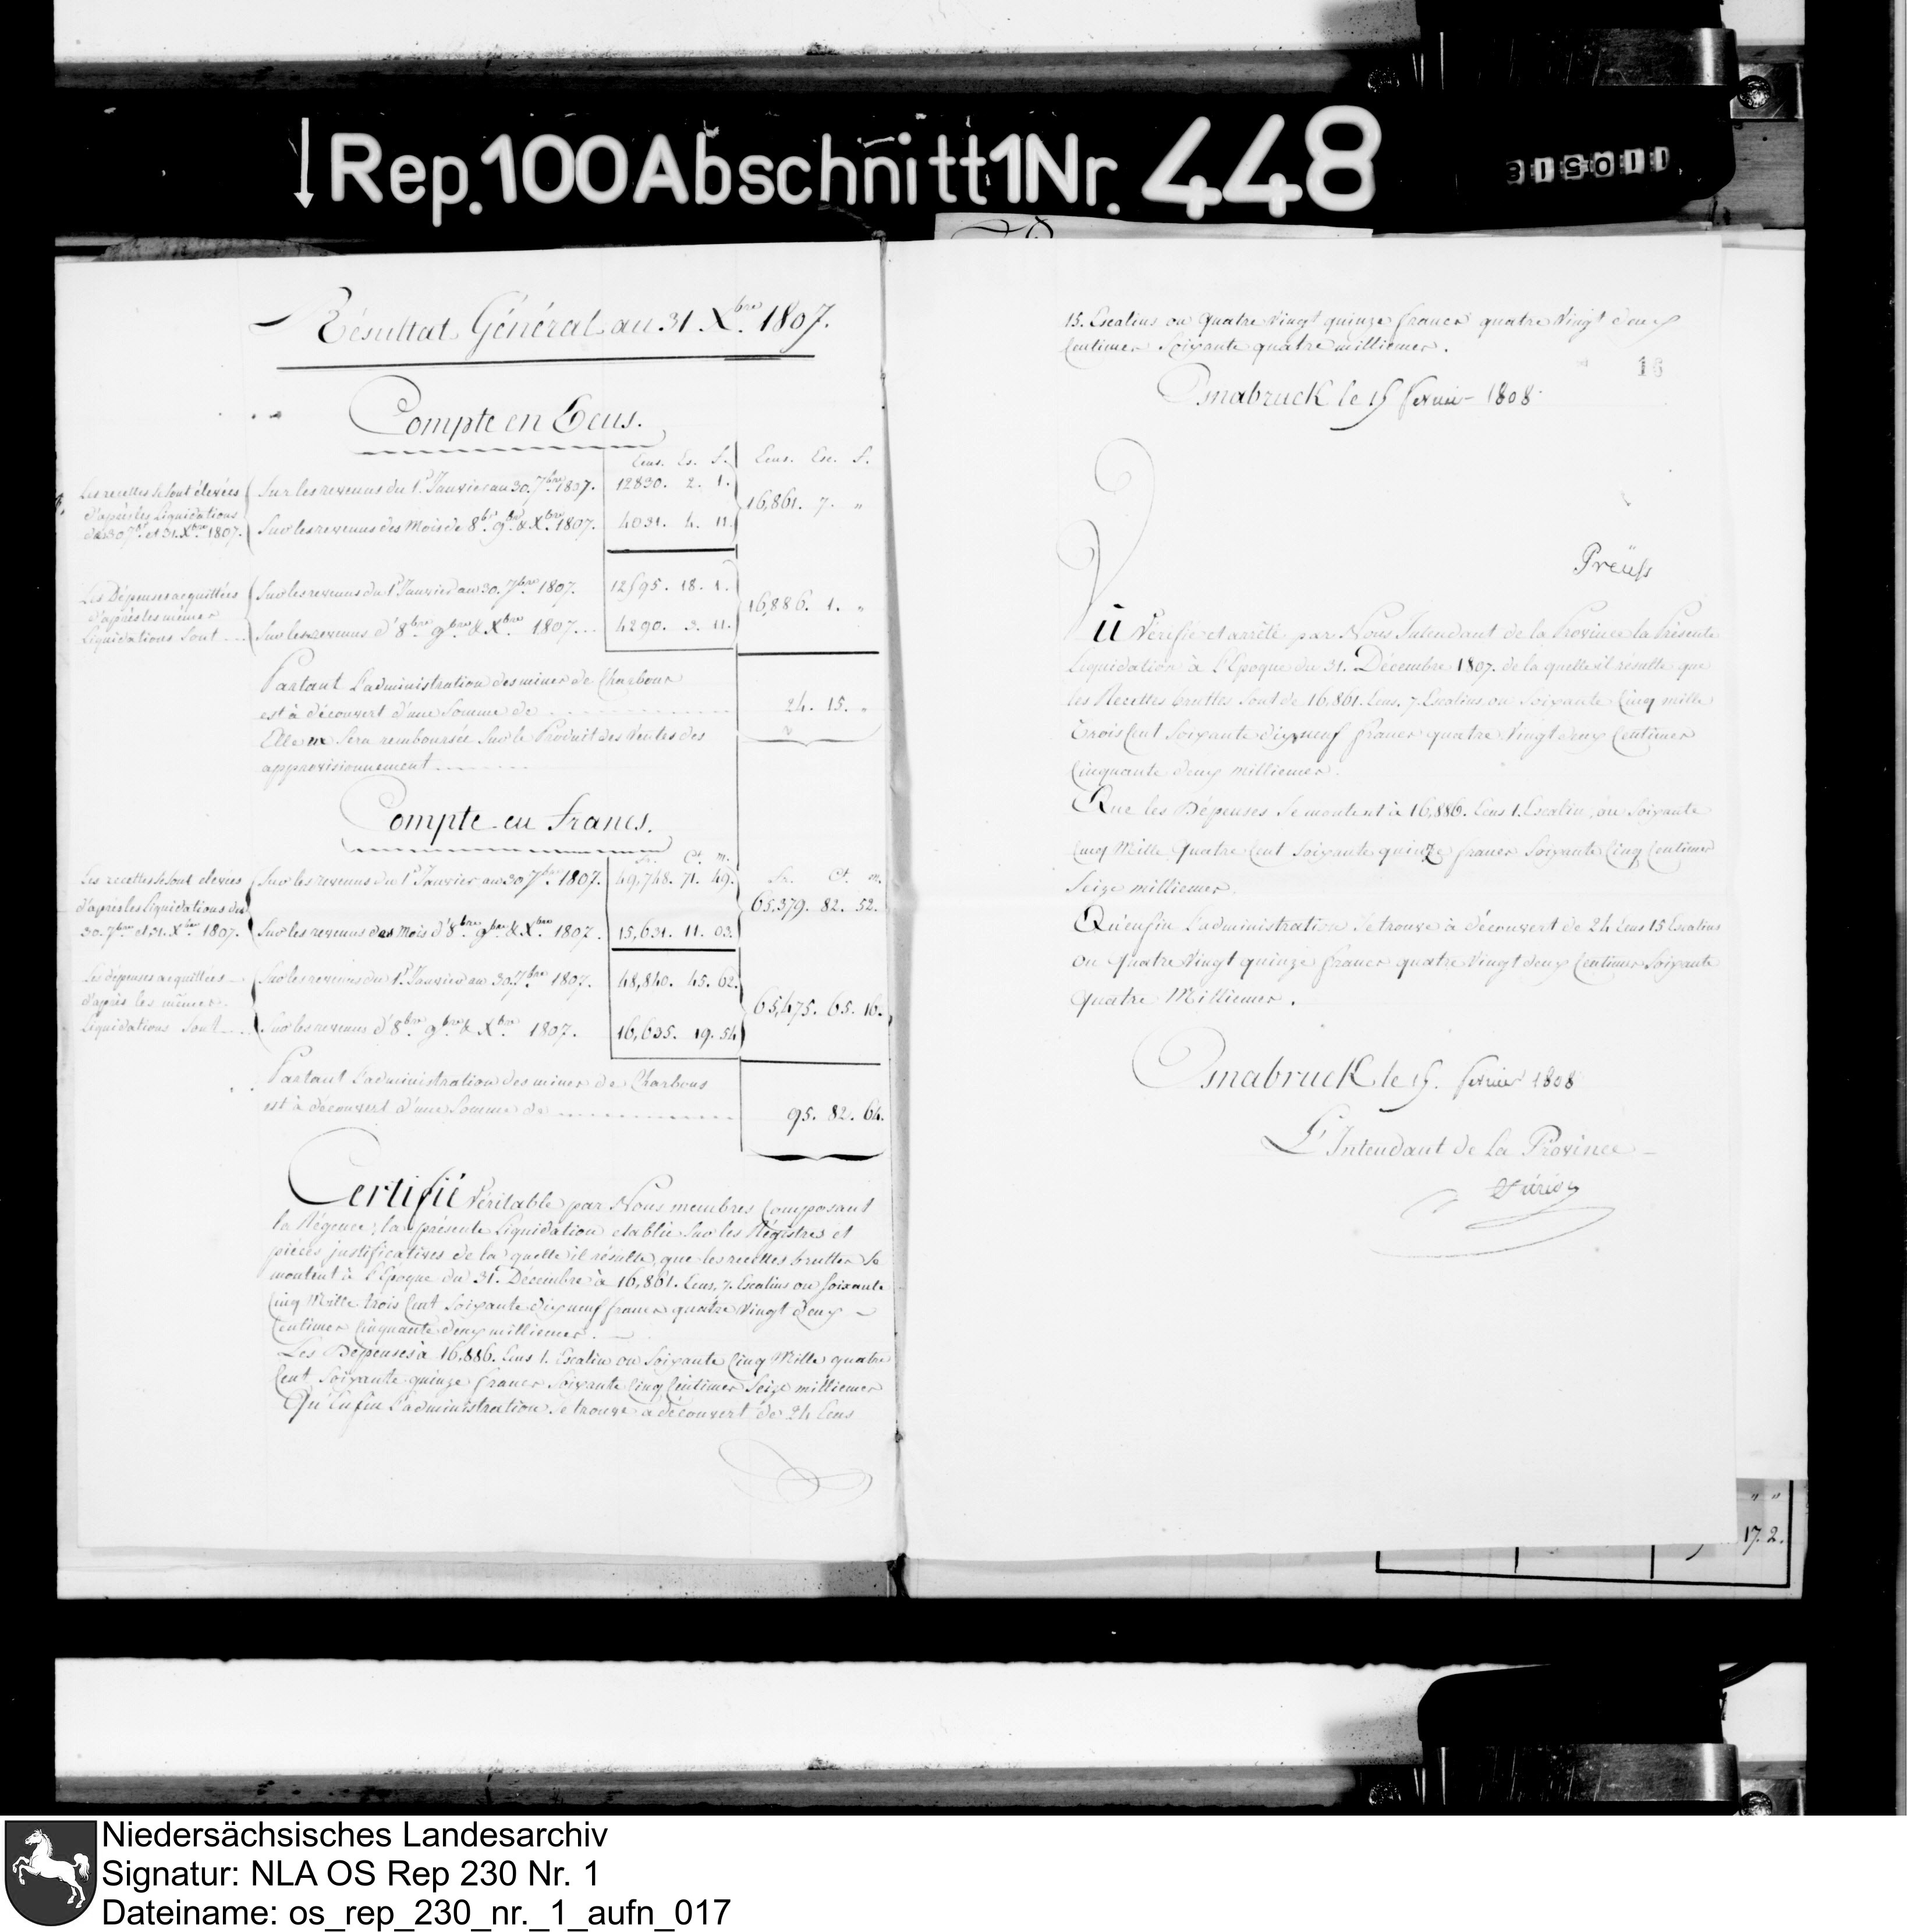 Rep.100Abschnitt1Nr. 448
Résultat Général au 31 Xbre 1807.
Compte en Ecus.
Ecus. Es. S. Ecus. Esc. S.
Les recettes se sont élevées
d'après les Liquidations
des 30 7bre et 31. Xbre 1807.
Sur les revenus du 1r Janvier au 30. 7bre 1807. 12830. 2. 1.
Sur les revenus des Mois de 8bre 9bre & Xbre 1807. 4031. 4. 11.
16,861. 7. "
Les Dépenses acquittées
d'après les mêmes
Liquidations Sont
Sur les revenus du 1r Janvier au 30. 7bre 1807. 12595. 18. 1.
Sur les revenus d'8bre 9bre & Xbre 1807. 4290. 3. 11.
16,886. 1. "
Partant l'administration des mines de Charbour
est à découvert d'une Somme de 24. 15. "
Elle ne Sera remboursée Sur le Produit des Ventes des
approvisionnement
Compte en francs.
Fr. Ct. m.
Fr. Ct. m.
Les recettes se sont elevées
d'après les Liquidations des
30. 7bre et 31. Xbre 1807.
Sur les revenus du 1r Janvier au 30 7bre 1807. 49,748. 71. 49.
Sur les revenus des Mois d'8bre 9bre & Xbre 1807. 15,631. 11. 03.
65,379. 82. 52.
Les dépenses acquittées
d'après les mêmes
Liquidations Sont
Sur les revenus du 1r Janvier au 30. 7bre 1807. 48,840. 45. 62.
Sur les revenus d'8bre 9bre & Xbre 1807. 16,635. 19. 54
65,475. 65. 16.
Partant l'administration des mines de Charbons
est à découvert d'une Somme de 95. 82. 64.
Certifié Véritable par Nous membres Composant
la Régence, la présente Liquidation etablie Sur les Régistres et
pièces justificatives de la quelle il résulte, que les recettes bruttes se
montent à l'Epoque du 31. Décembre à 16,861. Ecus, 7. Escalins ou Soixante
Cinq Mille trois Cent Soixante dix neuf francs quatre Vingt deux
Centimes Cinquante deux milliemes.
Les Dépenses à 16,886. Ecus 1. Escalin ou Soixante Cinq Mille quatre
Cent Soixante quinze francs Soixante Cinq Centimes Seize milliemes
Qu'Enfin l'administration Se trouve à découvert de 24 Ecus
15. Escalins ou Quatre Vingt quinze francs quatre Vingt deux
Centimes Soixante quatre milliemes.
16
Osnabruck le 15 fevrier 1808
Preuss
Vû Vérifié et arrêté par Nous Intendant de la Province la Présente
Liquidation à l'Epoque du 31. Décembre 1807. de la quelle il résulte que
les Recettes bruttes Sont de 16,861. Ecus, 7. Escalins ou Soixante Cinq mille
Trois Cent Soixante dix neuf francs quatre Vingt deux Centimes
Cinquante deux milliemes.
Que les Dépenses Se montent à 16,886. Ecus 1. Escalin, ou Soixante
Cinq Mille Quatre Cent Soixante quinze francs Soixante Cinq Centimes
Seize milliemes.
Qu'enfin l'administration Se trouve à découvert de 24 Ecus 15 Escalins
ou Quatre Vingt quinze francs quatre Vingt deux Centimes Soixante
quatre Milliemes.
Osnabruck le 15. fevrier 1808
L'Intendant de la Province
" "
17. 2.
Niedersächsisches Landesarchiv
Signatur: NLA OS Rep 230 Nr. 1
Dateiname: os_rep_230_nr._1_aufn_017